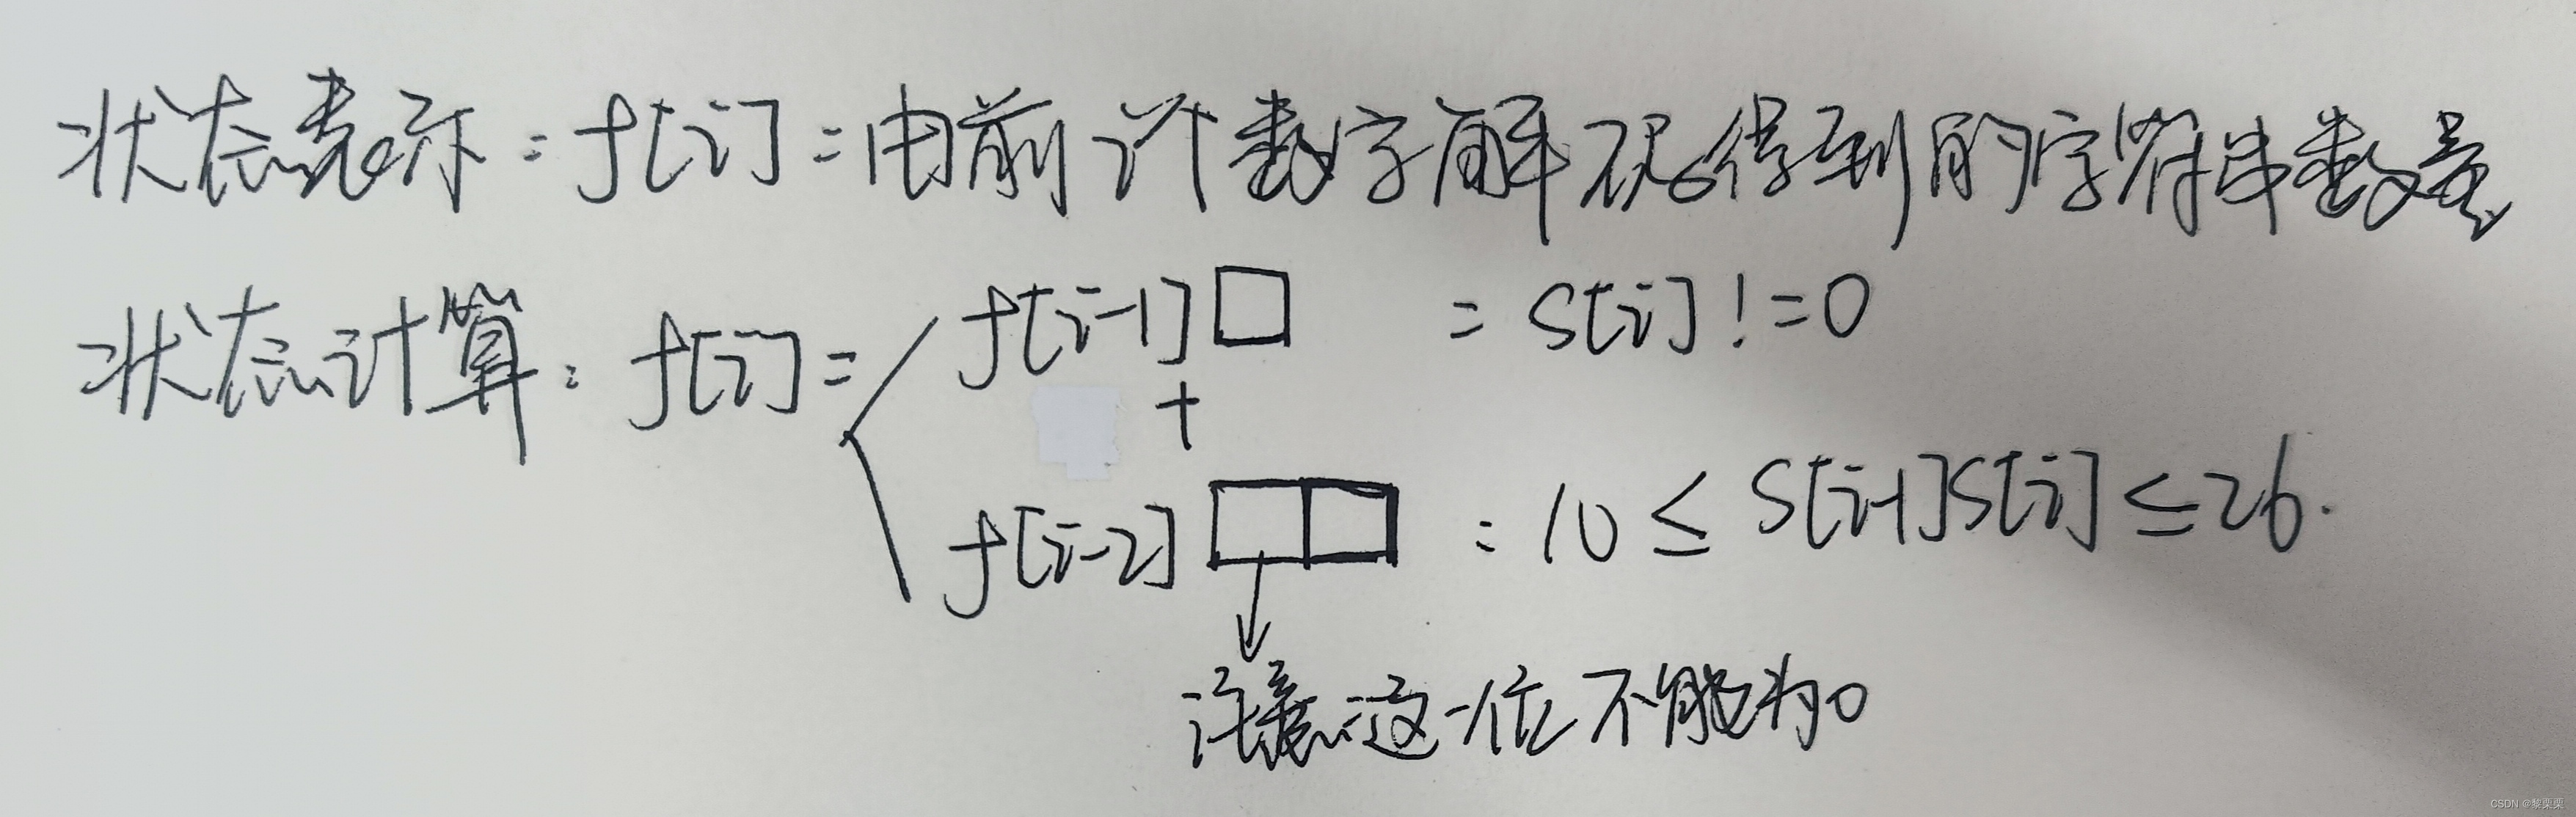 状态表示：f[i]=由前i个数字解码得到的字符串数量
状态计算：f[i]=
f[i-1]□ : s[i]!=0
+
f[i-2]□□ : 10≤s[i-1]s[i]≤26.
注意这一位不能为0
CSDN @黎栗栗